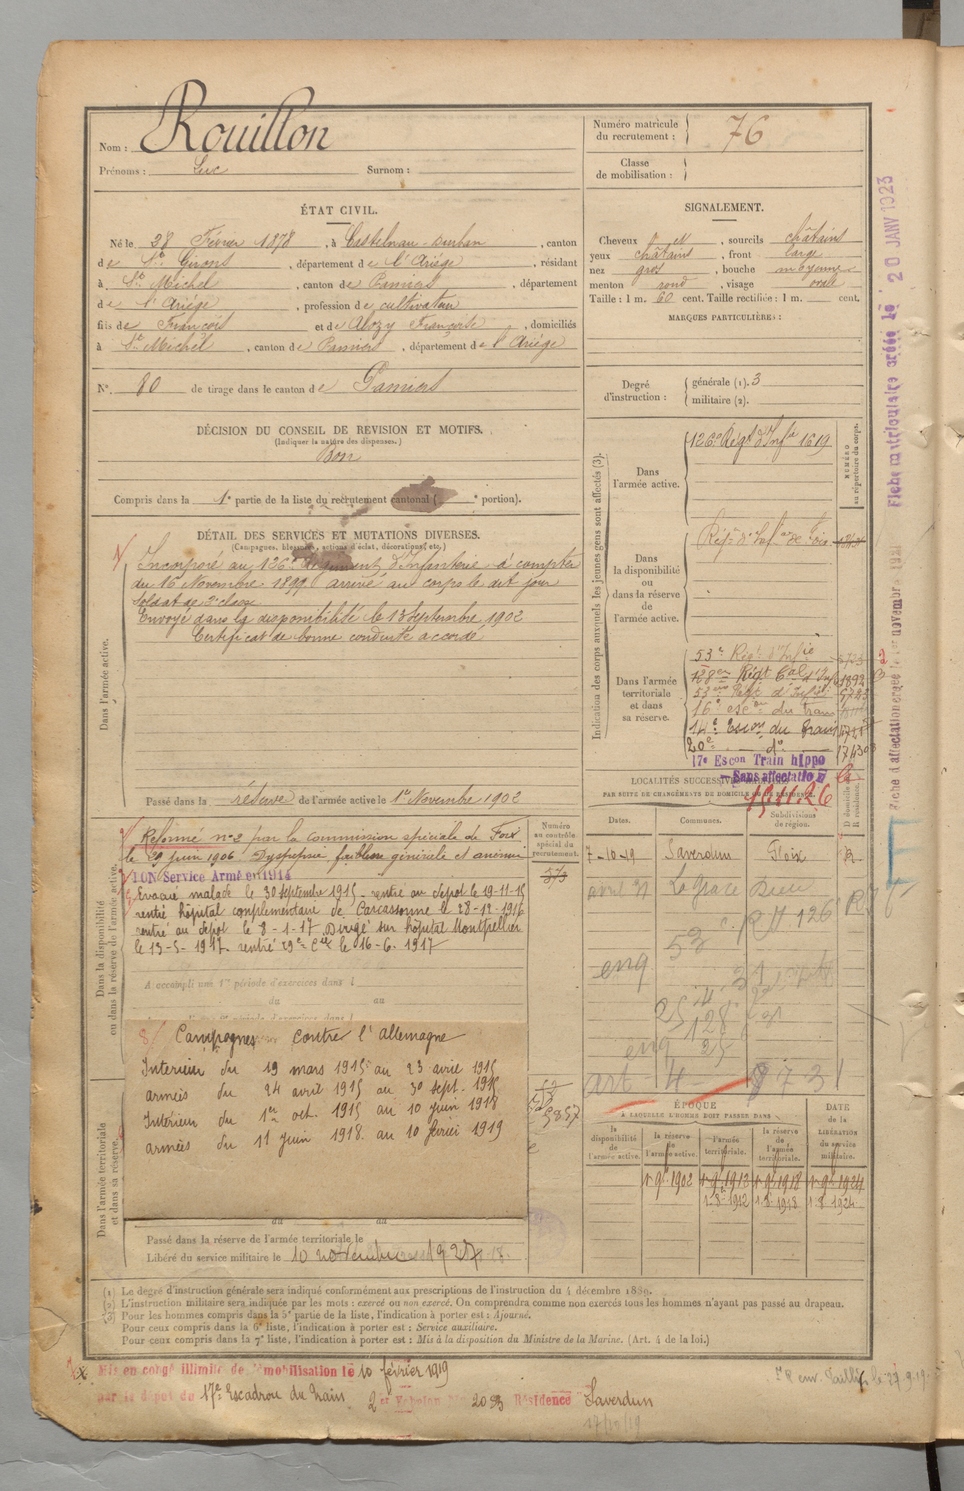 Nom : Rouillon
Prénoms : Luc Surnom :
ÉTAT CIVIL.
Né le 28 Février 1878, à Castelnau-Durban, canton
de St Girons, département de l'Ariège, résidant
à St Michel, canton de Pamiers, département
de l'Ariège, profession de cultivateur
fils de François et de Alozy Françoise, domiciliés
à St Michel, canton de Pamiers, département de l'Ariège
N° 80 de tirage dans le canton de Pamiers
DÉCISION DU CONSEIL DE RÉVISION ET MOTIFS.
(Indiquer la nature des dispenses.)
Bon
Compris dans la 1e partie de la liste du recrutement cantonal ( e portion).
DÉTAIL DES SERVICES ET MUTATIONS DIVERSES.
(Campagnes, blessures, actions d'éclat, décorations, etc.)
Dans l'armée active.
Incorporé au 126e Régiment d'Infanterie à compter
du 16 Novembre 1899 arrivé au corps le dit jour
Soldat de 2e classe
Envoyé dans la disponibilité le 13 Septembre 1902
Certificat de bonne conduite accordé
Passé dans la réserve de l'armée active le 1er Novembre 1902
Dans la disponibilité
ou dans la réserve de l'armée active.
Réformé n°2 par la Commission spéciale de Foix
le 29 juin 1906. Dyspepsie faiblesse générale et anémie
Service Armé en 1914
Evacué malade le 30 septembre 1915 - rentré au dépôt le 19-11-15
rentré hôpital complémentaire de Carcassonne le 28-12-1916
rentré au dépôt le 8-1-17. Dirigé sur hôpital Montpellier
le 13-5-1917. rentré 29e Cie le 16-6-1917
A accompli une 1re période d'exercices dans l
du au
Campagnes contre l'allemagne
Intérieur du 19 mars 1915 au 23 avril 1915
armées du 24 avril 1915 au 30 sept. 1915
Intérieur du 1er oct. 1915 au 10 juin 1918
armées du 11 juin 1918 au 10 février 1919
Dans l'armée territoriale
et dans sa réserve.
Passé dans la réserve de l'armée territoriale le
Libéré du service militaire le 10 novembre 1927
Numéro
au contrôle
spécial du
recrutement.
373
5857
Numéro matricule
du recrutement : 76
Classe
de mobilisation :
SIGNALEMENT.
Cheveux , sourcils châtains
yeux châtains, front large
nez gros, bouche moyenne
menton rond, visage ovale
Taille : 1 m. 60 cent. Taille rectifiée : 1 m. cent.
MARQUES PARTICULIÈRES :
Degré
d'instruction :
générale (1). 3
militaire (2).
Indication des corps auxquels les jeunes gens sont affectés (3).
NUMÉRO
au répertoire du corps.
Dans
l'armée active.
126e Régt d'Infie 1619
Dans
la disponibilité
ou
dans la réserve
de
l'armée active.
Régt d'Infie de Foix
Dans l'armée
territoriale
et dans
sa réserve.
53e Régt d'Infie
128e Régt Cal d'Infie 1892
53e Régt d'Infie 5723
16e escon du train
14e Escon du Train
20e do
17e Escon Train hippo
Sans affectation
15.11.26
LOCALITÉS SUCCESSIVES
PAR SUITE DE CHANGEMENTS DE DOMICILE OU DE RÉSIDENCE.
Dates. Communes. Subdivisions
de région.
D domicile
R résidence.
7-10-19 Saverdun Foix R
avril 27 La Grace Dieu
RII 126
53
enq
128
enq
art 4 1873
ÉPOQUE
À LAQUELLE L'HOMME DOIT PASSER DANS
DATE
de la
LIBÉRATION
du service
militaire.
la
disponibilité
de
l'armée active.
la réserve
de
l'armée active.
l'armée
territoriale.
la réserve
de
l'armée
territoriale.
1-9bre 1902 1-9bre 1912 1-9bre 1918 1-9bre 1924
1-8bre 1912 1-8bre 1918 1-8bre 1924
Fiche matriculaire créée le 20 JANV 1923
Fiche d'affectation créée le 1er novembre 1921
(1) Le degré d'instruction générale sera indiqué conformément aux prescriptions de l'instruction du 4 décembre 1889.
(2) L'instruction militaire sera indiquée par les mots : exercé ou non exercé. On comprendra comme non exercés tous les hommes n'ayant pas passé au drapeau.
(3) Pour les hommes compris dans la 5e partie de la liste, l'indication à porter est : Ajourné.
Pour ceux compris dans la 6e liste, l'indication à porter est : Service auxiliaire.
Pour ceux compris dans la 7e liste, l'indication à porter est : Mis à la disposition du Ministre de la Marine. (Art. 4 de la loi.)
Mis en congé illimité de démobilisation le 10 février 1919
par le dépôt du 17e Escadron du Train 2e Echelon No 2083 Résidence Saverdun
17/10/19